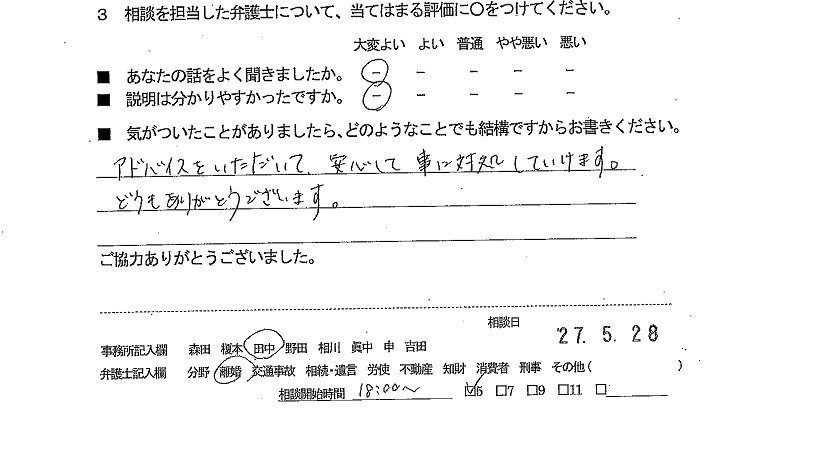 3 相談を担当した弁護士について、当てはまる評価に○をつけてください。
大変よい よい 普通 やや悪い 悪い
■ あなたの話をよく聞きましたか。 － － － － －
■ 説明は分かりやすかったですか。 － － － － －
■ 気がついたことがありましたら、どのようなことでも結構ですからお書きください。
アドバイスをいただいて、安心して事に対処していけます。
どうもありがとうございます。
ご協力ありがとうございました。
相談日 27. 5. 28
事務所記入欄 森田 榎本 田中 野田 相川 眞中 申 吉田
弁護士記入欄 分野 離婚 交通事故 相続・遺言 労使 不動産 知財 消費者 刑事 その他( )
相談開始時間 18:00～ ☑5 □7 □9 □11 □